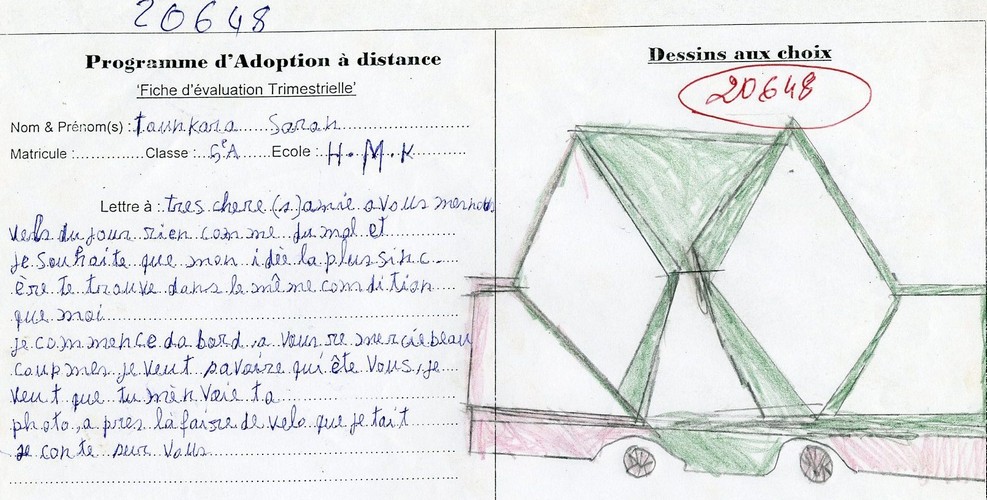 20648
Programme d'Adoption à distance
'Fiche d'évaluation Trimestrielle'
Nom & Prénom(s) : Tounkara Sarah
Matricule : Classe : 6e A Ecole : H.M.K
Lettre à : tres chere (s) amie a vous
du jour rien comme du mal et
je souhaite que mon idèe la plus sinc-
ère te trouve dans le même comdition
que moi
je commence da bord a vous re mercie beau
coup mes je veut savoire qui ête vous, je
veut que tu mèn voie ta
photo, a près là faire de velo que je tait
conte seur vous
Dessins aux choix
20648